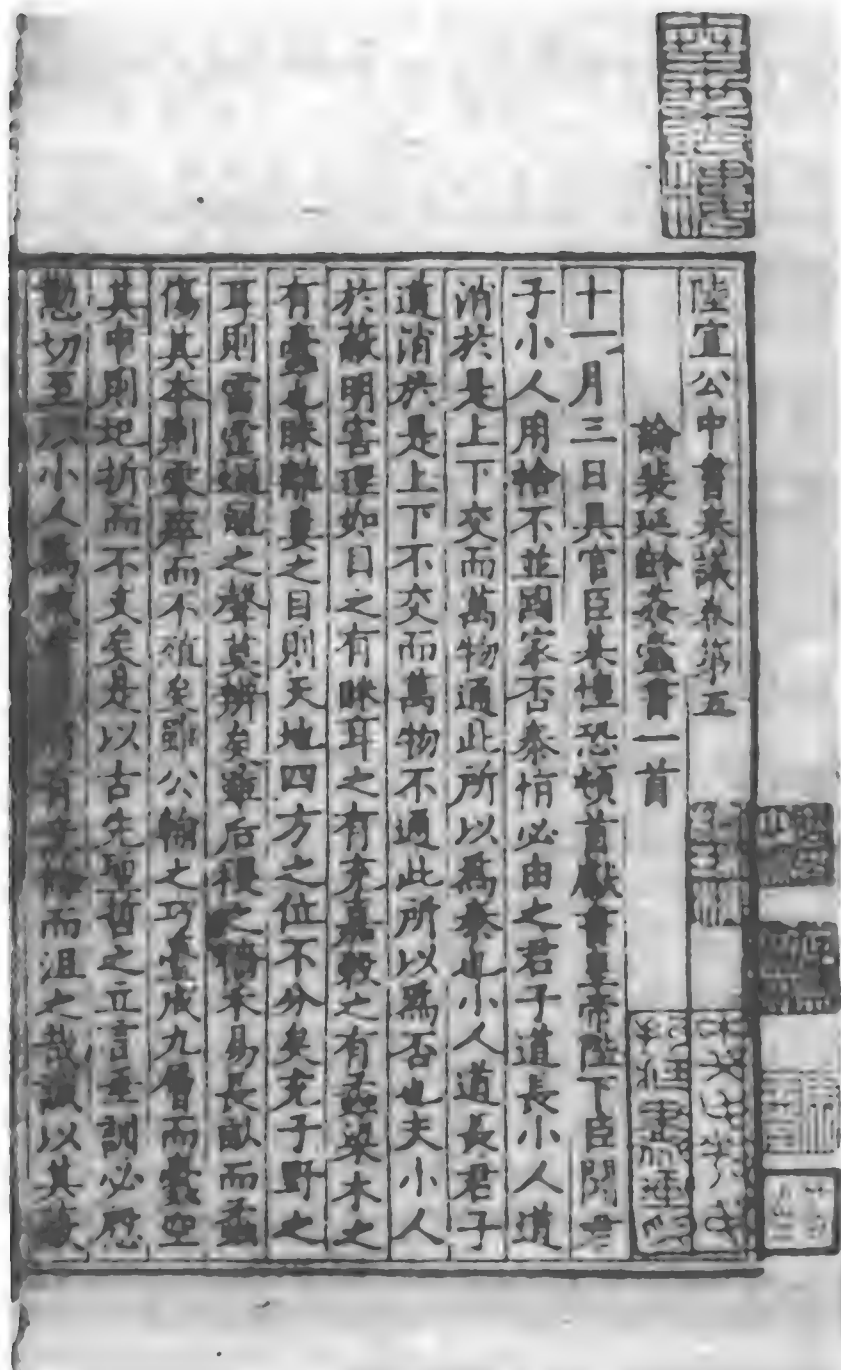 陸宣公中書奏議卷第五
論裴延齡姦蠹書一首
十一月三日具官臣某惶恐頓首獻書皇帝陛下臣聞君
子小人用捨不並國家否泰恒必由之君子道長小人道
消於是上下交而萬物通此所以爲泰也小人道長君子
道消於是上下不交而萬物不通此所以爲否也夫小人
於蔽明害理如目之有眯耳之有充嘉穀之有蟊梁木之
有蠹也眯離婁之目則天地四方之位不分矣充子野之
耳則雷霆蠅黽之聲莫辨矣雖后稷之穡禾易長畝而蟊
傷其本則零瘁而不植矣雖公輸之巧臺成九層而蠹空
其中則圮折而不支矣是以古先聖哲之立言垂訓必慇
懃切至以小人爲戒 有 而沮之哉誠以其蔽